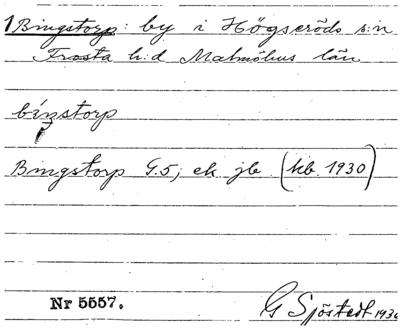 1 Bingstorp: by i Högseröds s:n
Frosta h:d Malmöhus län
bíŋstorp
Bingstorp G.5; ek jb (kb. 1930)
Nr 5557.
G Sjöstedt 1936